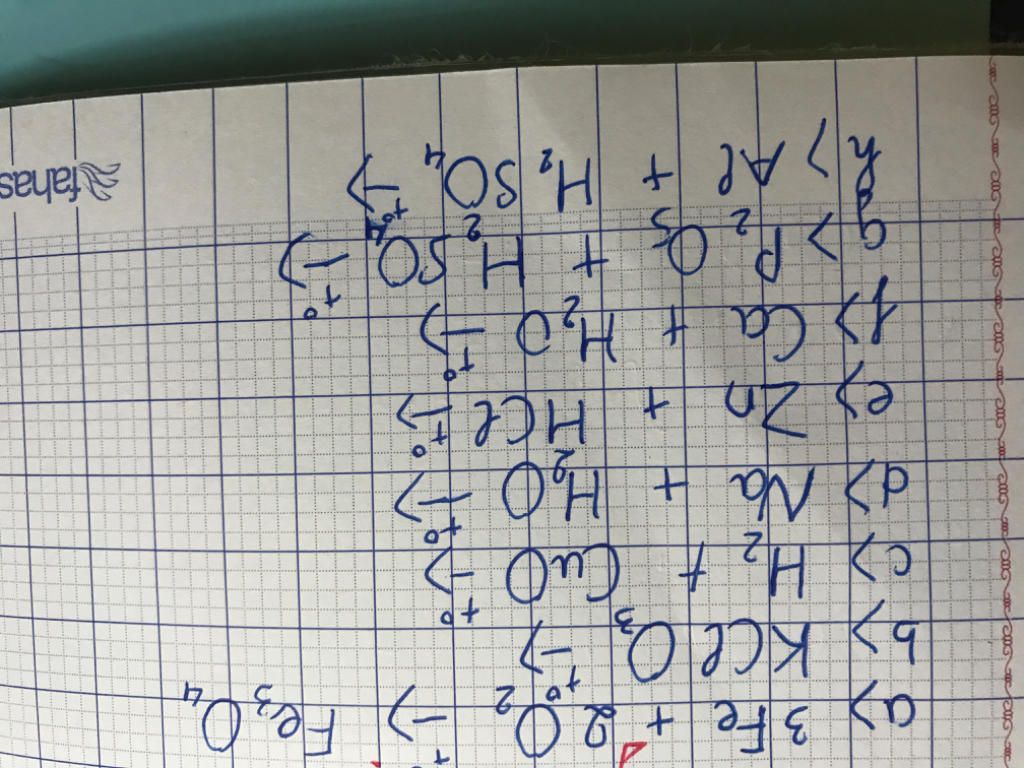 a> 3Fe + 2O₂ →(t°) Fe₃O₄
b> KClO₃ →(t°)
c> H₂ + CuO →(t°)
d> Na + H₂O →(t°)
e> Zn + HCl →(t°)
f> Ca + H₂O →(t°)
g> P₂O₅ + H₂SO₄ →(t°)
h> Al + H₂SO₄ →(t°)
fahas